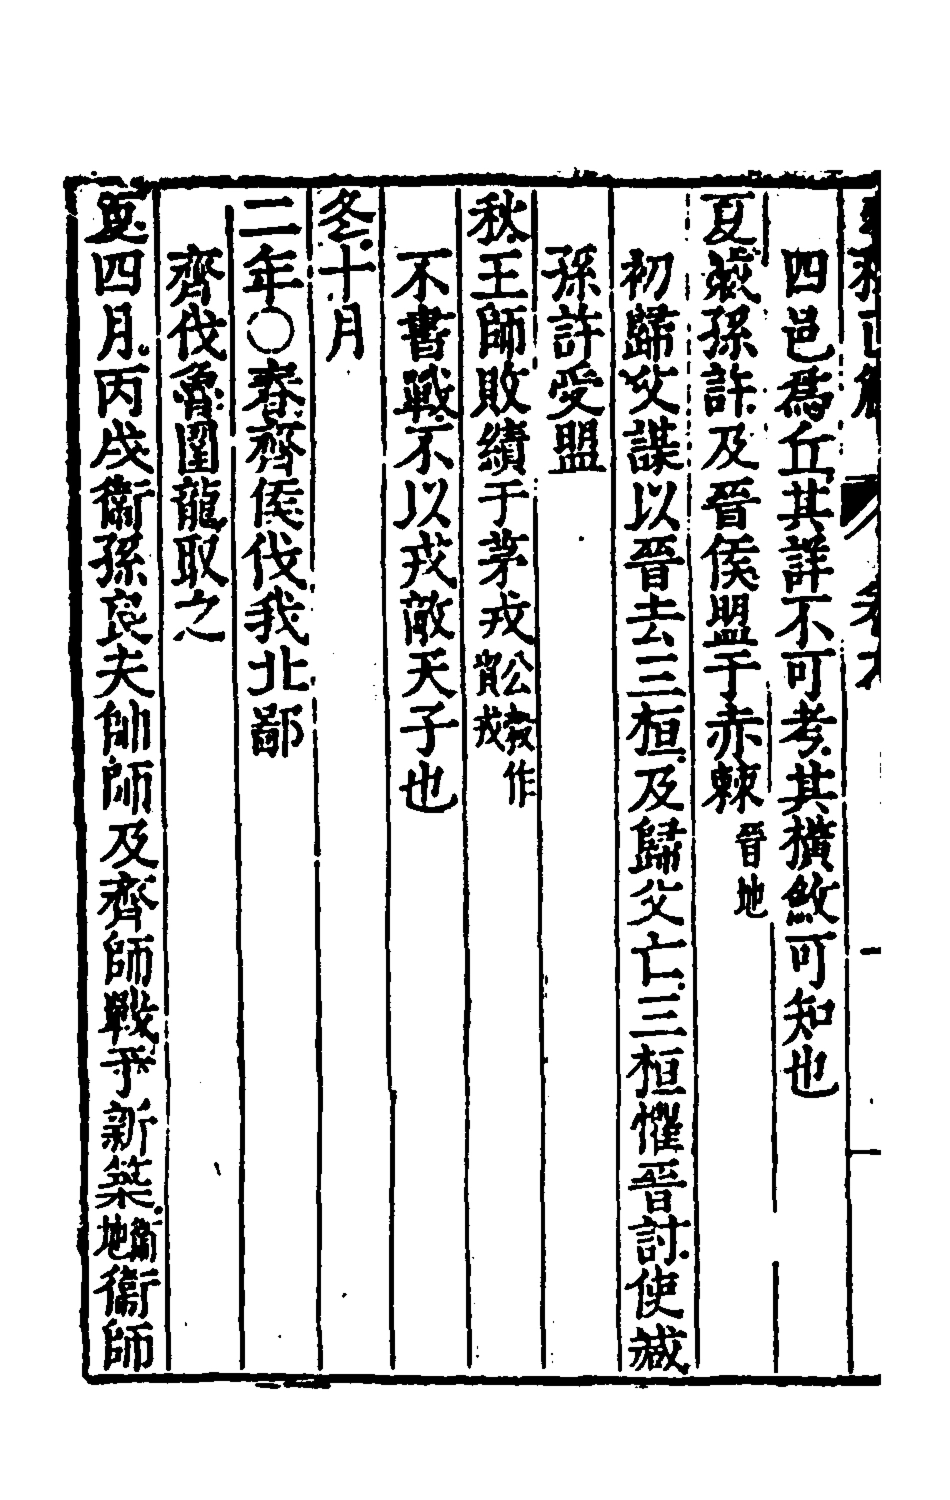 四邑爲丘其詳不可考其橫斂可知也
夏臧孫許及晉侯盟于赤棘晉地
初歸父謀以晉去三桓及歸父亡三桓懼晉討使臧
孫許受盟
秋王師敗績于茅戎公穀作貿戎
不書戰不以戎敵天子也
冬十月
二年○春齊侯伐我北鄙
齊伐魯圍龍取之
夏四月丙戌衞孫良夫帥師及齊師戰于新築衞地衞師